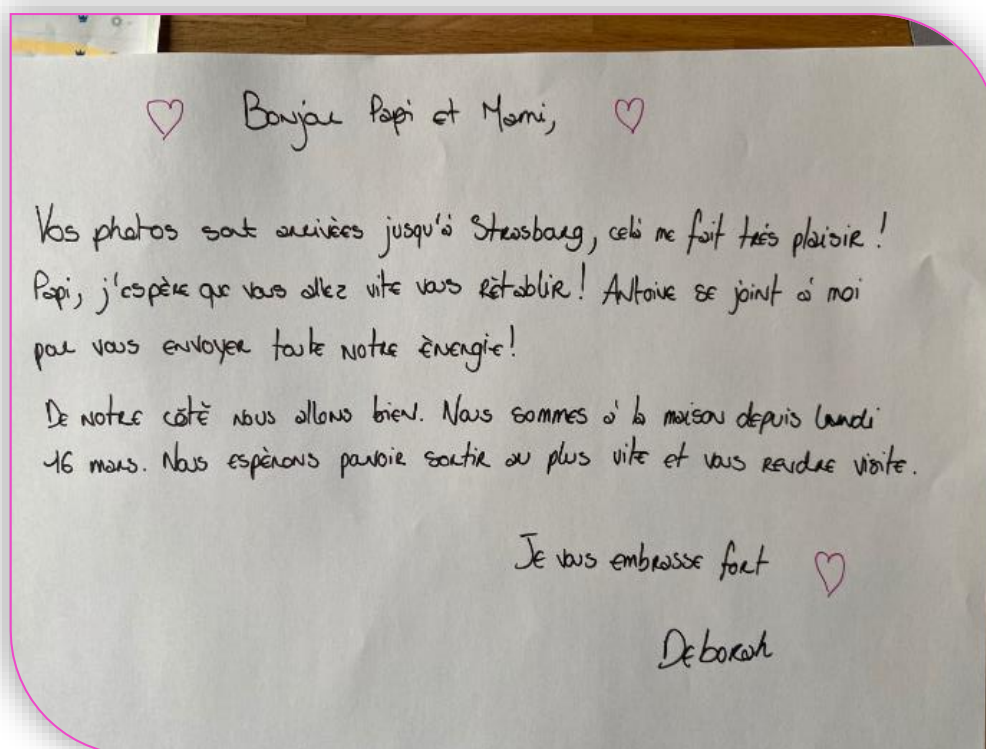 Bonjour Papi et Mami,
Vos photos sont arrivées jusqu'à Strasbourg, celà me fait très plaisir !
Papi, j'espère que vous allez vite vous rétablir ! Antoine se joint à moi
pour vous envoyer toute notre énergie !
De notre côté nous allons bien. Nous sommes à la maison depuis lundi
16 mars. Nous espérons pouvoir sortir au plus vite et vous rendre visite.
Je vous embrasse fort
Deborah